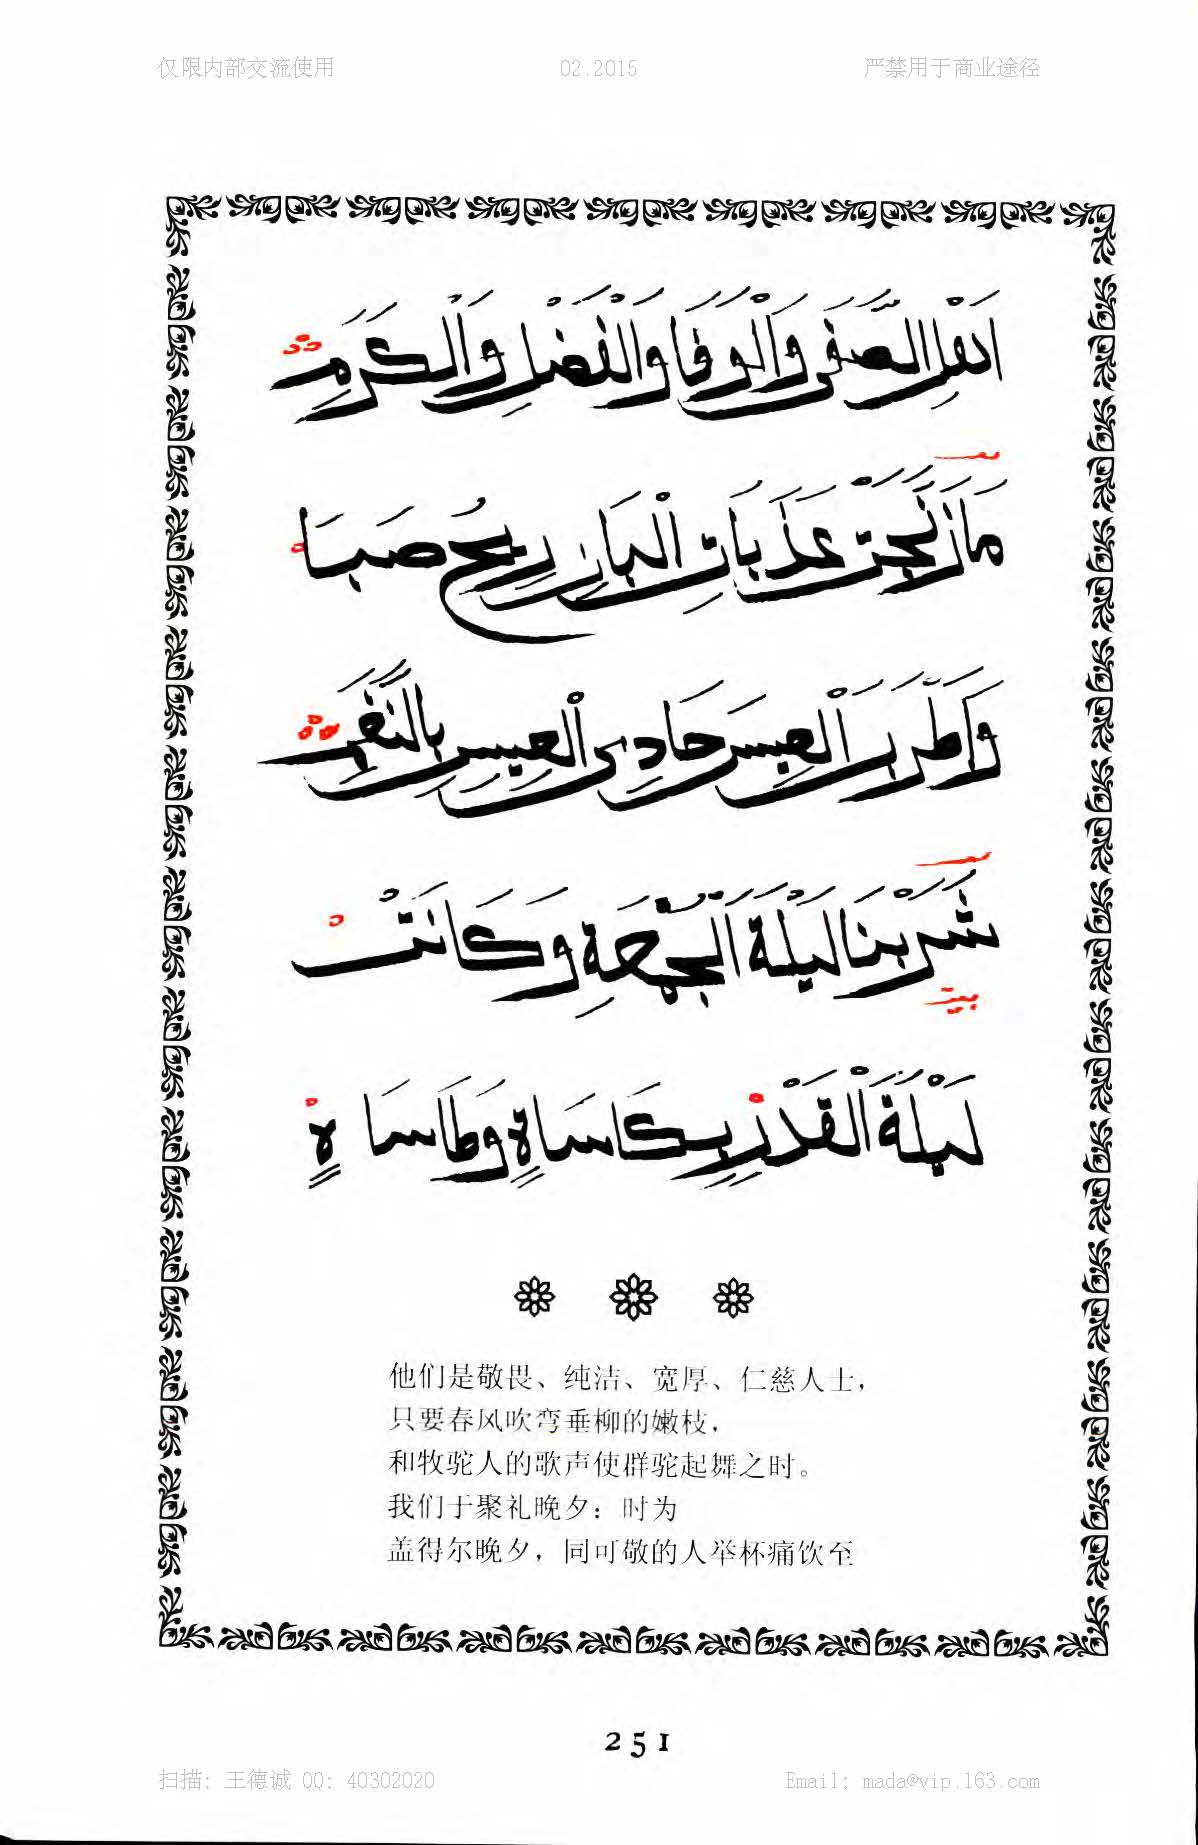 仅限内部交流使用 02.2015 严禁用于商业途径
اهل الصفى والوفا والفضل والكرم
مارنحت عذبات البان ريح صبا
واطرب العيس حادى العيس بالنغم
شربنا ليلة الجمعة وكانت
ليلة القدر بكاساة وطاساة
他们是敬畏、纯洁、宽厚、仁慈人士，
只要春风吹弯垂柳的嫩枝，
和牧驼人的歌声使群驼起舞之时。
我们于聚礼晚夕：时为
盖得尔晚夕，同可敬的人举杯痛饮至
251
扫描: 王德诚 QQ: 40302020 Email: mada@vip.163.com